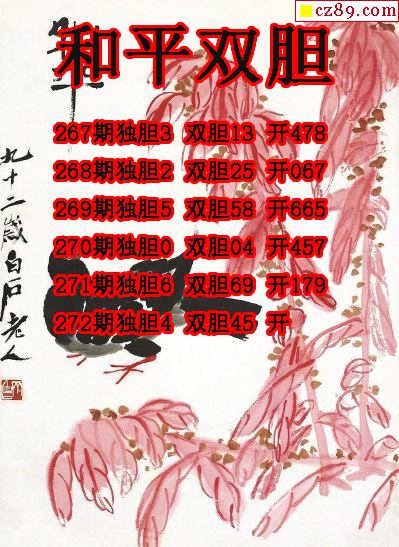 cz89.com
和平
和平双胆
267期独胆3 双胆13 开478
268期独胆2 双胆25 开067
269期独胆5 双胆58 开665
270期独胆0 双胆04 开457
271期独胆6 双胆69 开179
272期独胆4 双胆45 开
九十二歲白石老人